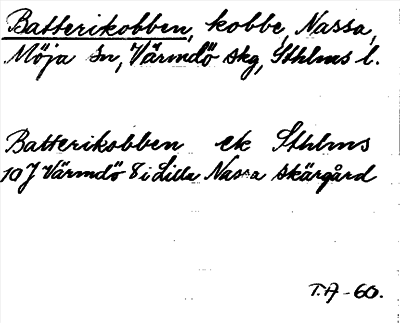 Batterikobben, kobbe, Nassa,
Möja sn, Värmdö skg, Sthlms l.
Batterikobben ek Sthlms
10J Värmdö 8 i Lilla Nassa skärgård
T.A -60.